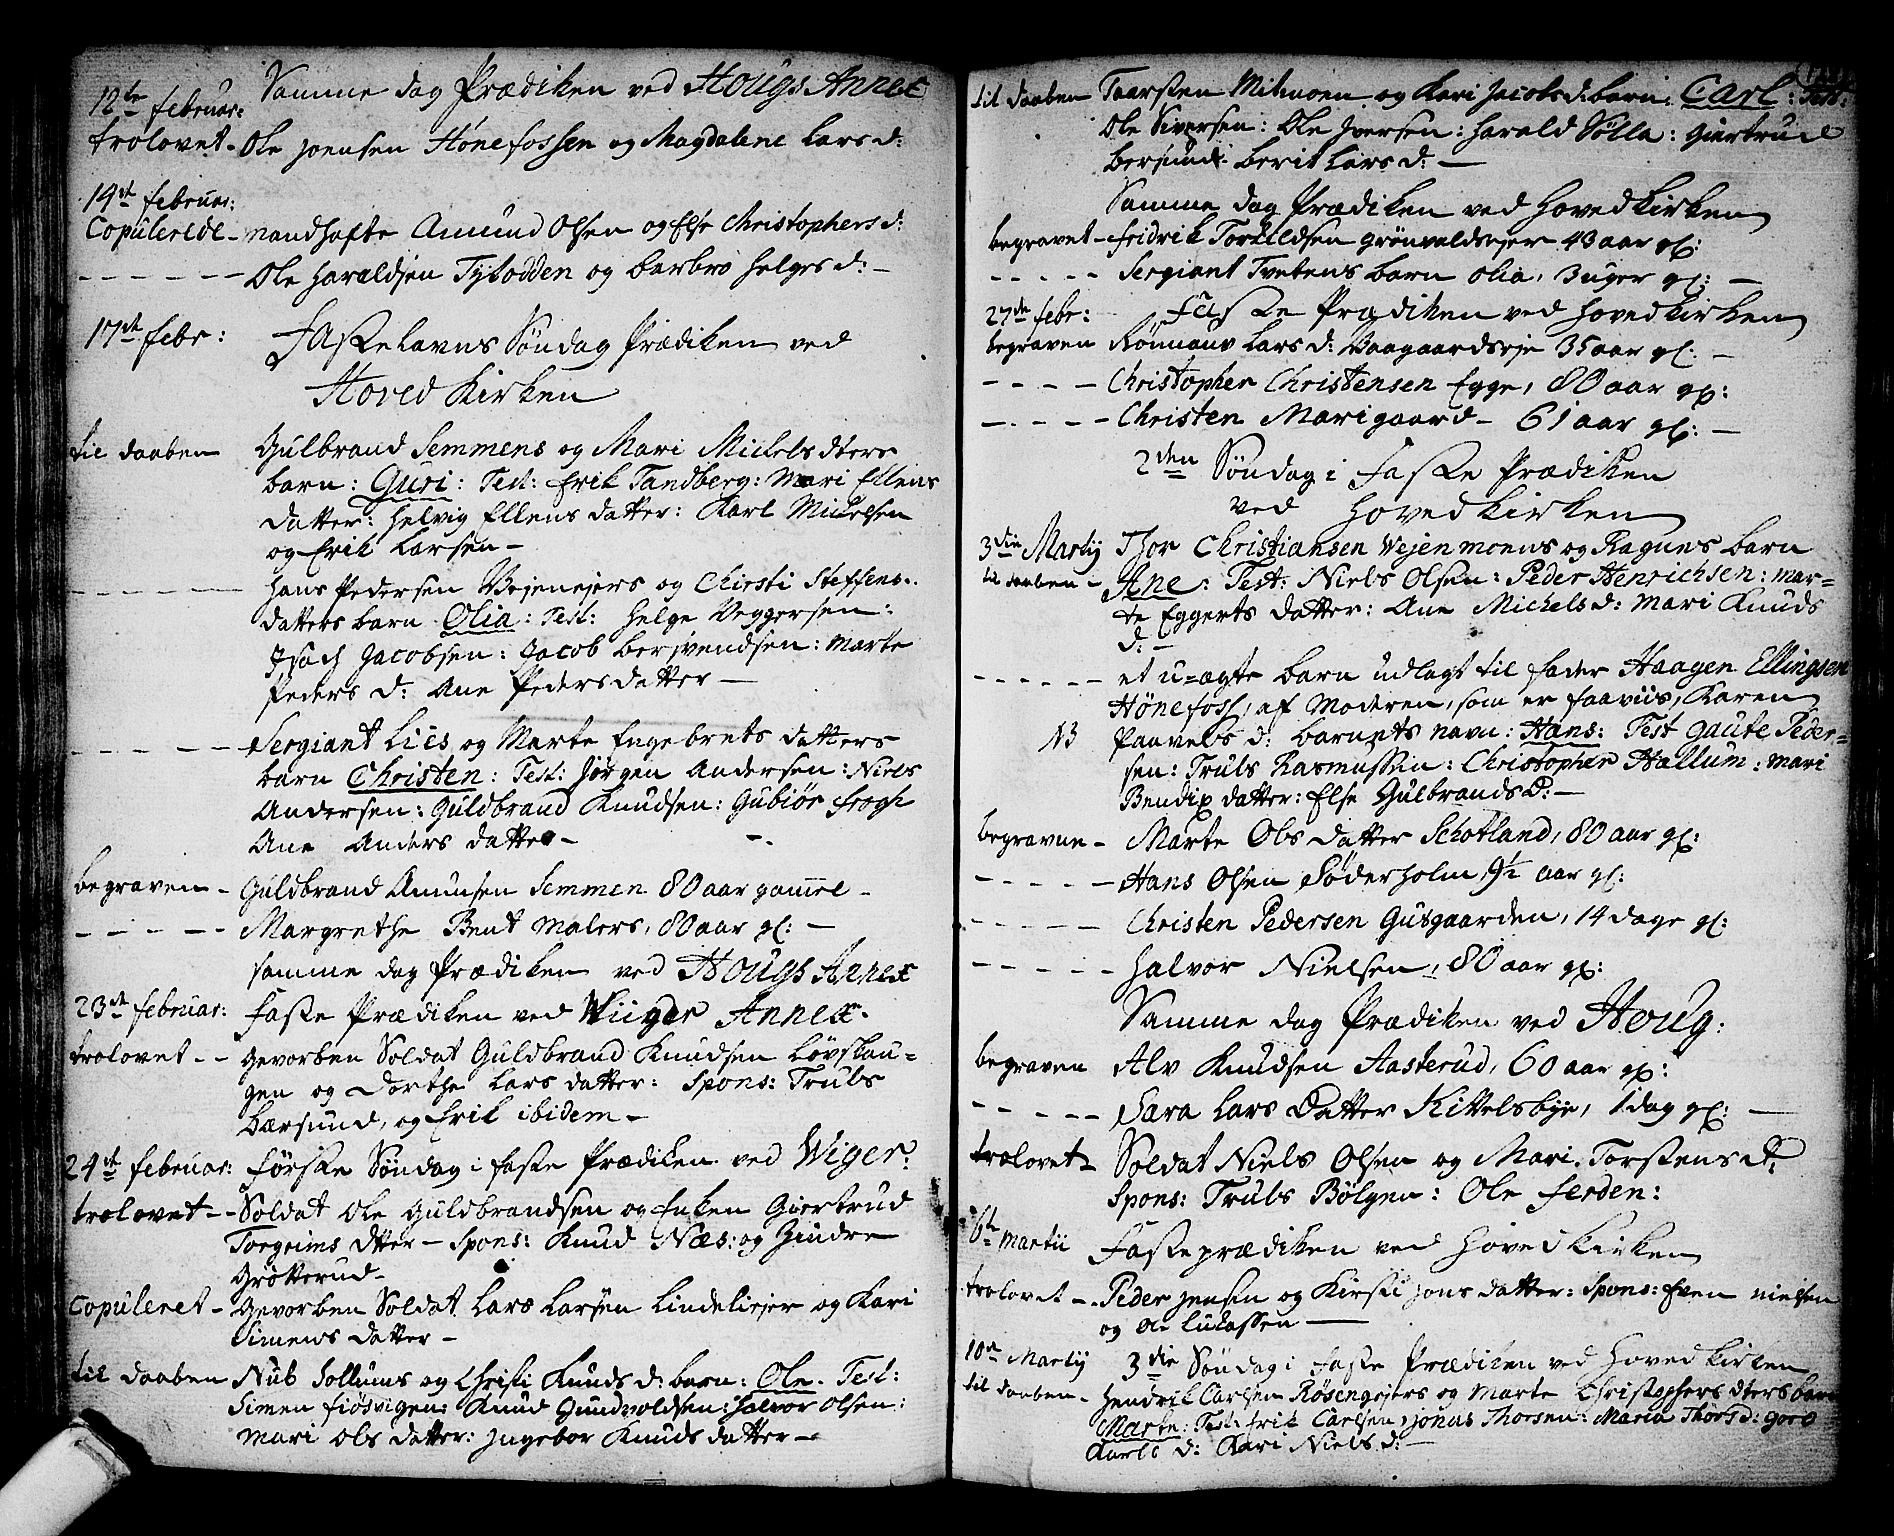 Samme dag Prædiken ved Hougs Annex
12te februar:
trolovet - Ole Joensen Hønefossen og Magdalene Lars d:
14de februar:
Copulerede - Mandhafte Amund Olsen og Else Christophers d:
- - - - - Ole Haraldsen Tytodden og Barbro Helges d: -
17de febr: Fastelavns Søndag Prædiken ved
Hoved Kirken
til daaben Gulbrand Semmens og Mari Michels dters
barn: Guri: Test: Erik Tandberg: Mari Ellens
datter: Helvig Ellens datter: Karl Michelsen
og Erik Larsen -
- - - - - Hans Pedersen Vejenejers og Chirsti Steffens
datters barn Olia: Test: Helge Veggersen:
Isach Jacobsen: Jacob Berjvendsen: Marte
Peders d: Ane Pedersdatter -
- - - - - Sergiant Lies og Marte Engebrets datters
barn Christen: Test: Jørgen Andersen: Niels
Andersen: Guldbrand Knudsen: Gubiør Frogh
Ane Anders datter -
begraven - Guldbrand Amunsen Semmen 80 aar gamel -
- - - - - Margrethe Bent Malers, 80 aar gl: -
samme dag Prædiken ved Hougs Annex
23de februar: Faste Prædiken ved Wiiger Annex.
trolovet - - Gevorben Soldat Guldbrand Knudsen Løvslau=
gen og Dorthe Lars datter: Spons: Truls
Bærsund, og Erik ibidem -
24de februar: første Søndag i faste Prædiken ved Wiger:
trolovet - - Soldat Ole Guldbrandsen og Enken Giertrud
Torgrims dtter - Spons: Knud Næs: og Gindre
Grøtterud -
Copuleret - Gevorben Soldat Lars Larsen Lindeliejer og Kari
Simens datter -
til daaben Nub Sollums og Christi Knuds d: barn: Ole. Test:
Simen fiøsvigen: Knud Gundvoldsen: Halvor Olsen:
Mari Ols datter: Ingebor Knuds datter -
til daaben Taarsten Milmoen og Kari Jacobs d: barn: Carl: Test:
Ole Siversen: Ole Iversen: Harald Sølla: Giertrud
Bersund: Berit Lars d: -
Samme dag Prædiken ved Hovedkirken
begravet - Fridrik Torkildsen Grönvoldsejer 43 aar gl:
- - - - - Sergiant Tvetens barn Olia, 3 uger gl: -
27de febr: Faste Prædiken ved Hovedkirken
begraven Rönnauv Lars d: Vaagaardseje 35 aar gl: -
- - - - Christopher Christensen Egge, 80 aar gl:
- - - - Christen Marigaard - 61 aar gl: -
2den Søndag i Faste Prædiken
ved Hovedkirken
3die Martij Thor Christiansen Vejenmoens og Raguns barn
til daaben - Ane: Test: Niels Olsen: Peder Henrichsen: Mar=
te Eggerts datter: Ane Michels d: Mari Knuds
d: -
- - - - - et u=ægte barn udlagt til fader Haagen Ellingsen
Hönefoss, af Moderen, som er faaviis, Karen
NB Paavels d: barnets navn: Hans: Test Gaute Peder=
sen: Truls Rasmussen: Christopher Hallum: Mari
Bendix datter: Else Gulbrands d: -
begravne - Marte Ols datter Schotland, 80 aar gl:
- - - - - Hans Olsen Söderholm, 9½ aar gl:
- - - - - Christen Pedersen Gusgaarden, 14 dage gl:
- - - - - Halvor Nielsen, 80 aar gl:
Samme dag Prædiken ved Houg:
begraven Alv Knudsen Aasterud, 60 aar gl:
- - - - - Sara Lars Datter Kittelsbye, 1 dag gl: -
trolovet - Soldat Niels Olsen og Mari Torstens d:
Spons: Truls Bölgen: Ole Ferden:
6te Martii Fasteprædiken ved Hovedkirken
trolovet - Peder Jensen og Kirsti Jons datter: Spons: Even Nielsen
og Ole Lukassen -
10de Martij 3die Søndag i Faste Prædiken ved Hovedkirken
til daaben - Hendrik Carlsen Røsengejers og Marte Christophers dters barn
Marte: Test: Erik Carlsen, Jonas Thorsen: Maria Thors d: Goro
Karls d: Kari Niels d: -